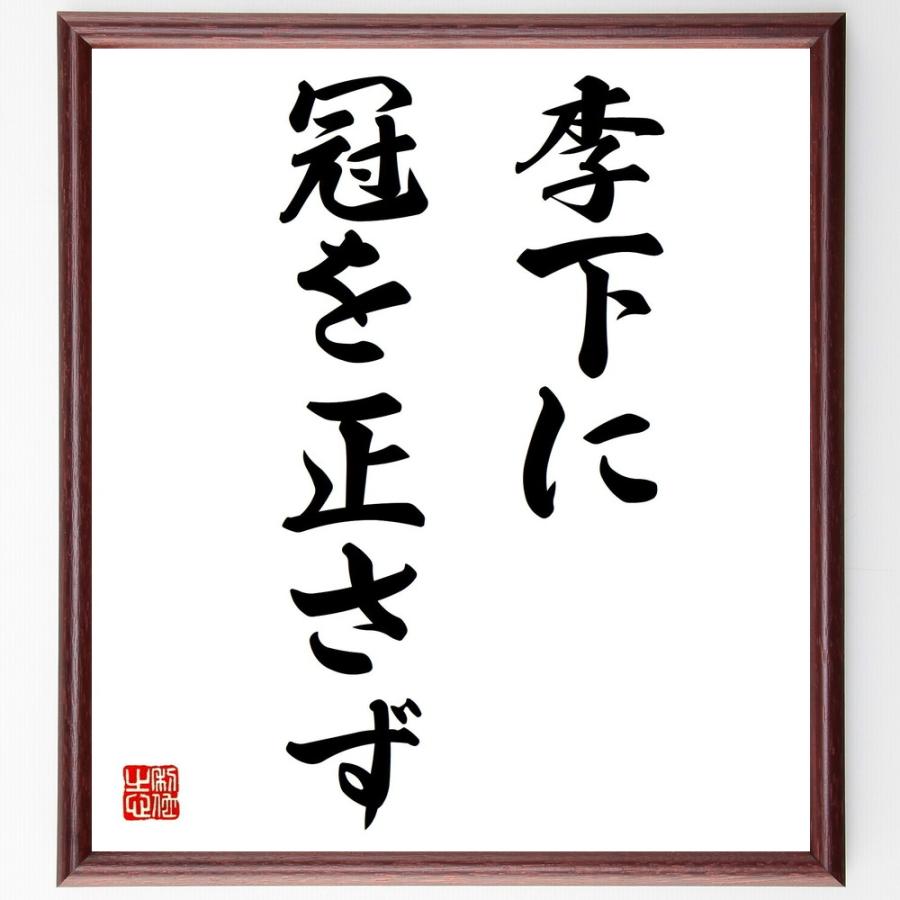 李下に
冠を正さず